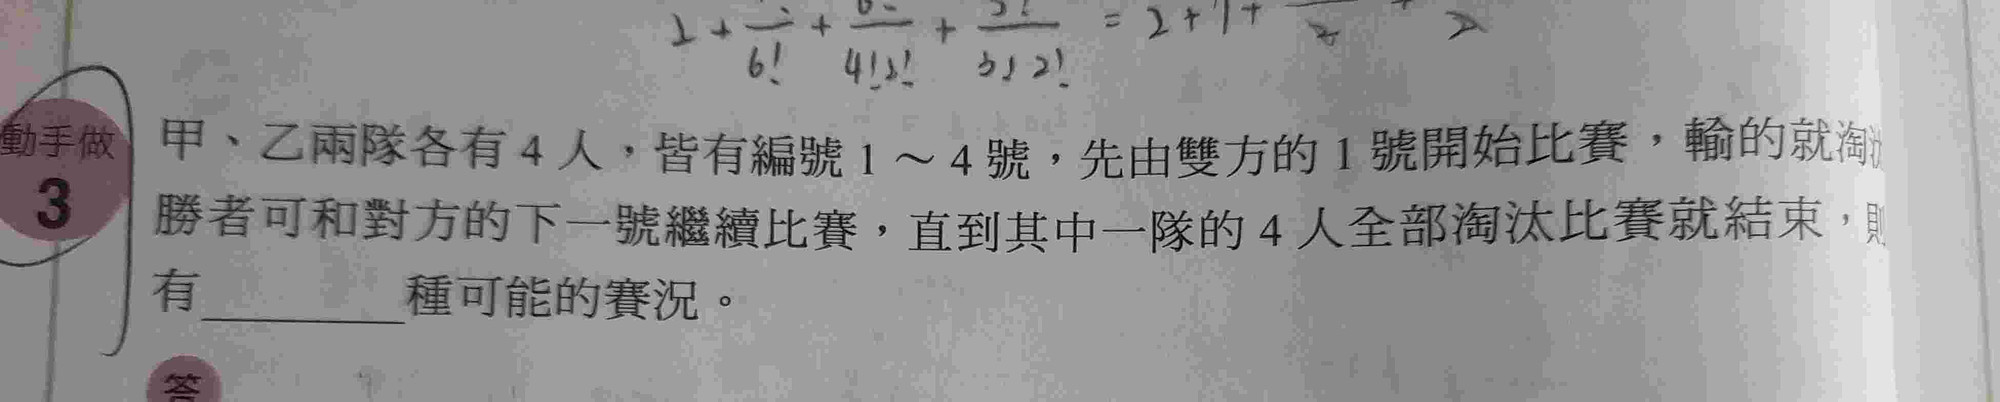 = 2 + 1 +
2 + 6! + 4!2! + 3!2!
動手做
3
甲、乙兩隊各有 4 人，皆有編號 1 ～ 4 號，先由雙方的 1 號開始比賽，輸的就淘
勝者可和對方的下一號繼續比賽，直到其中一隊的 4 人全部淘汰比賽就結束，則
有________種可能的賽況。
答